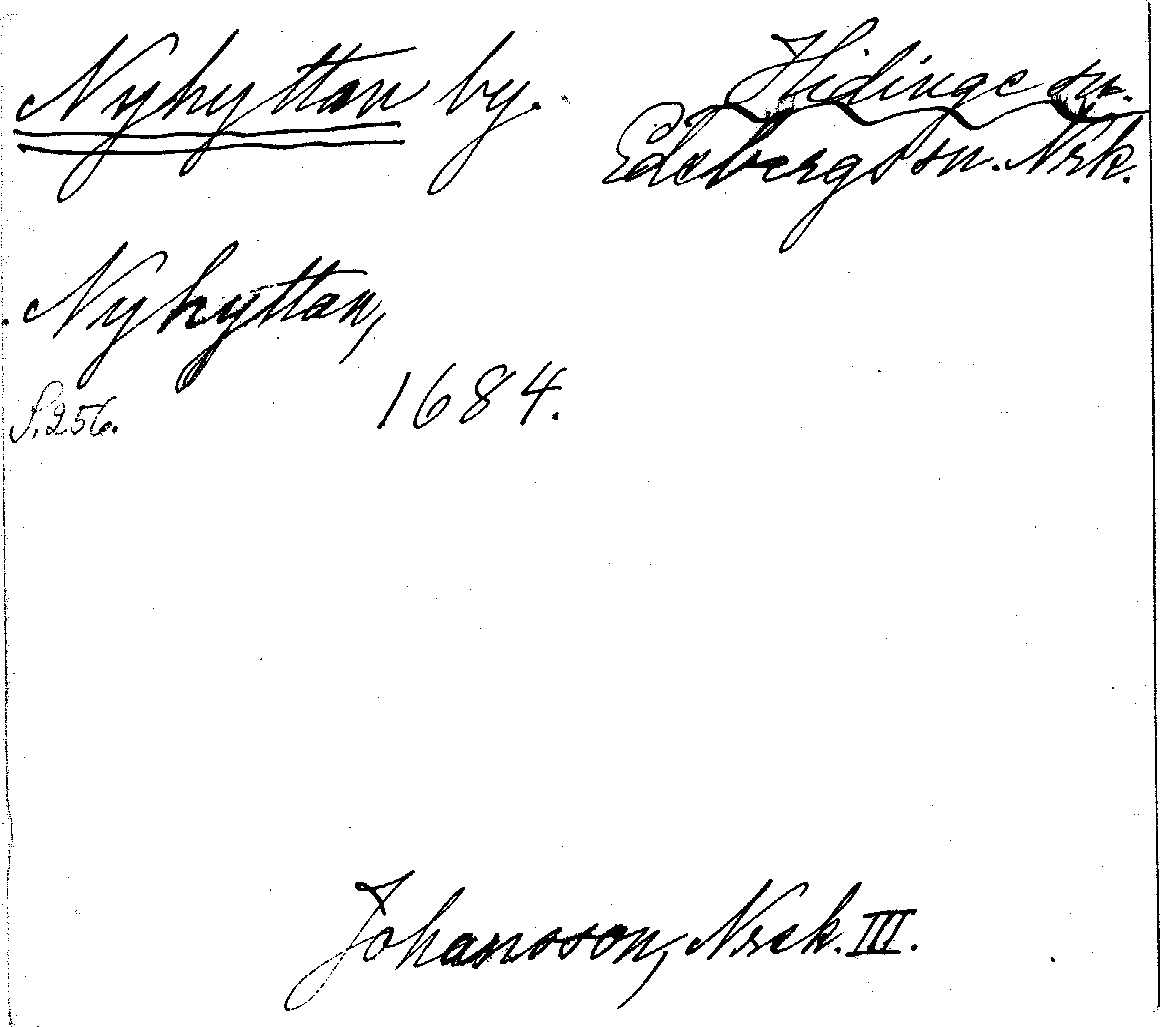 Nyhyttan by.
Hidinge sn.
Edsbergs sn. Nrk.
Nyhyttan,
S. 256.
1684.
Johansson, Nrck. III.